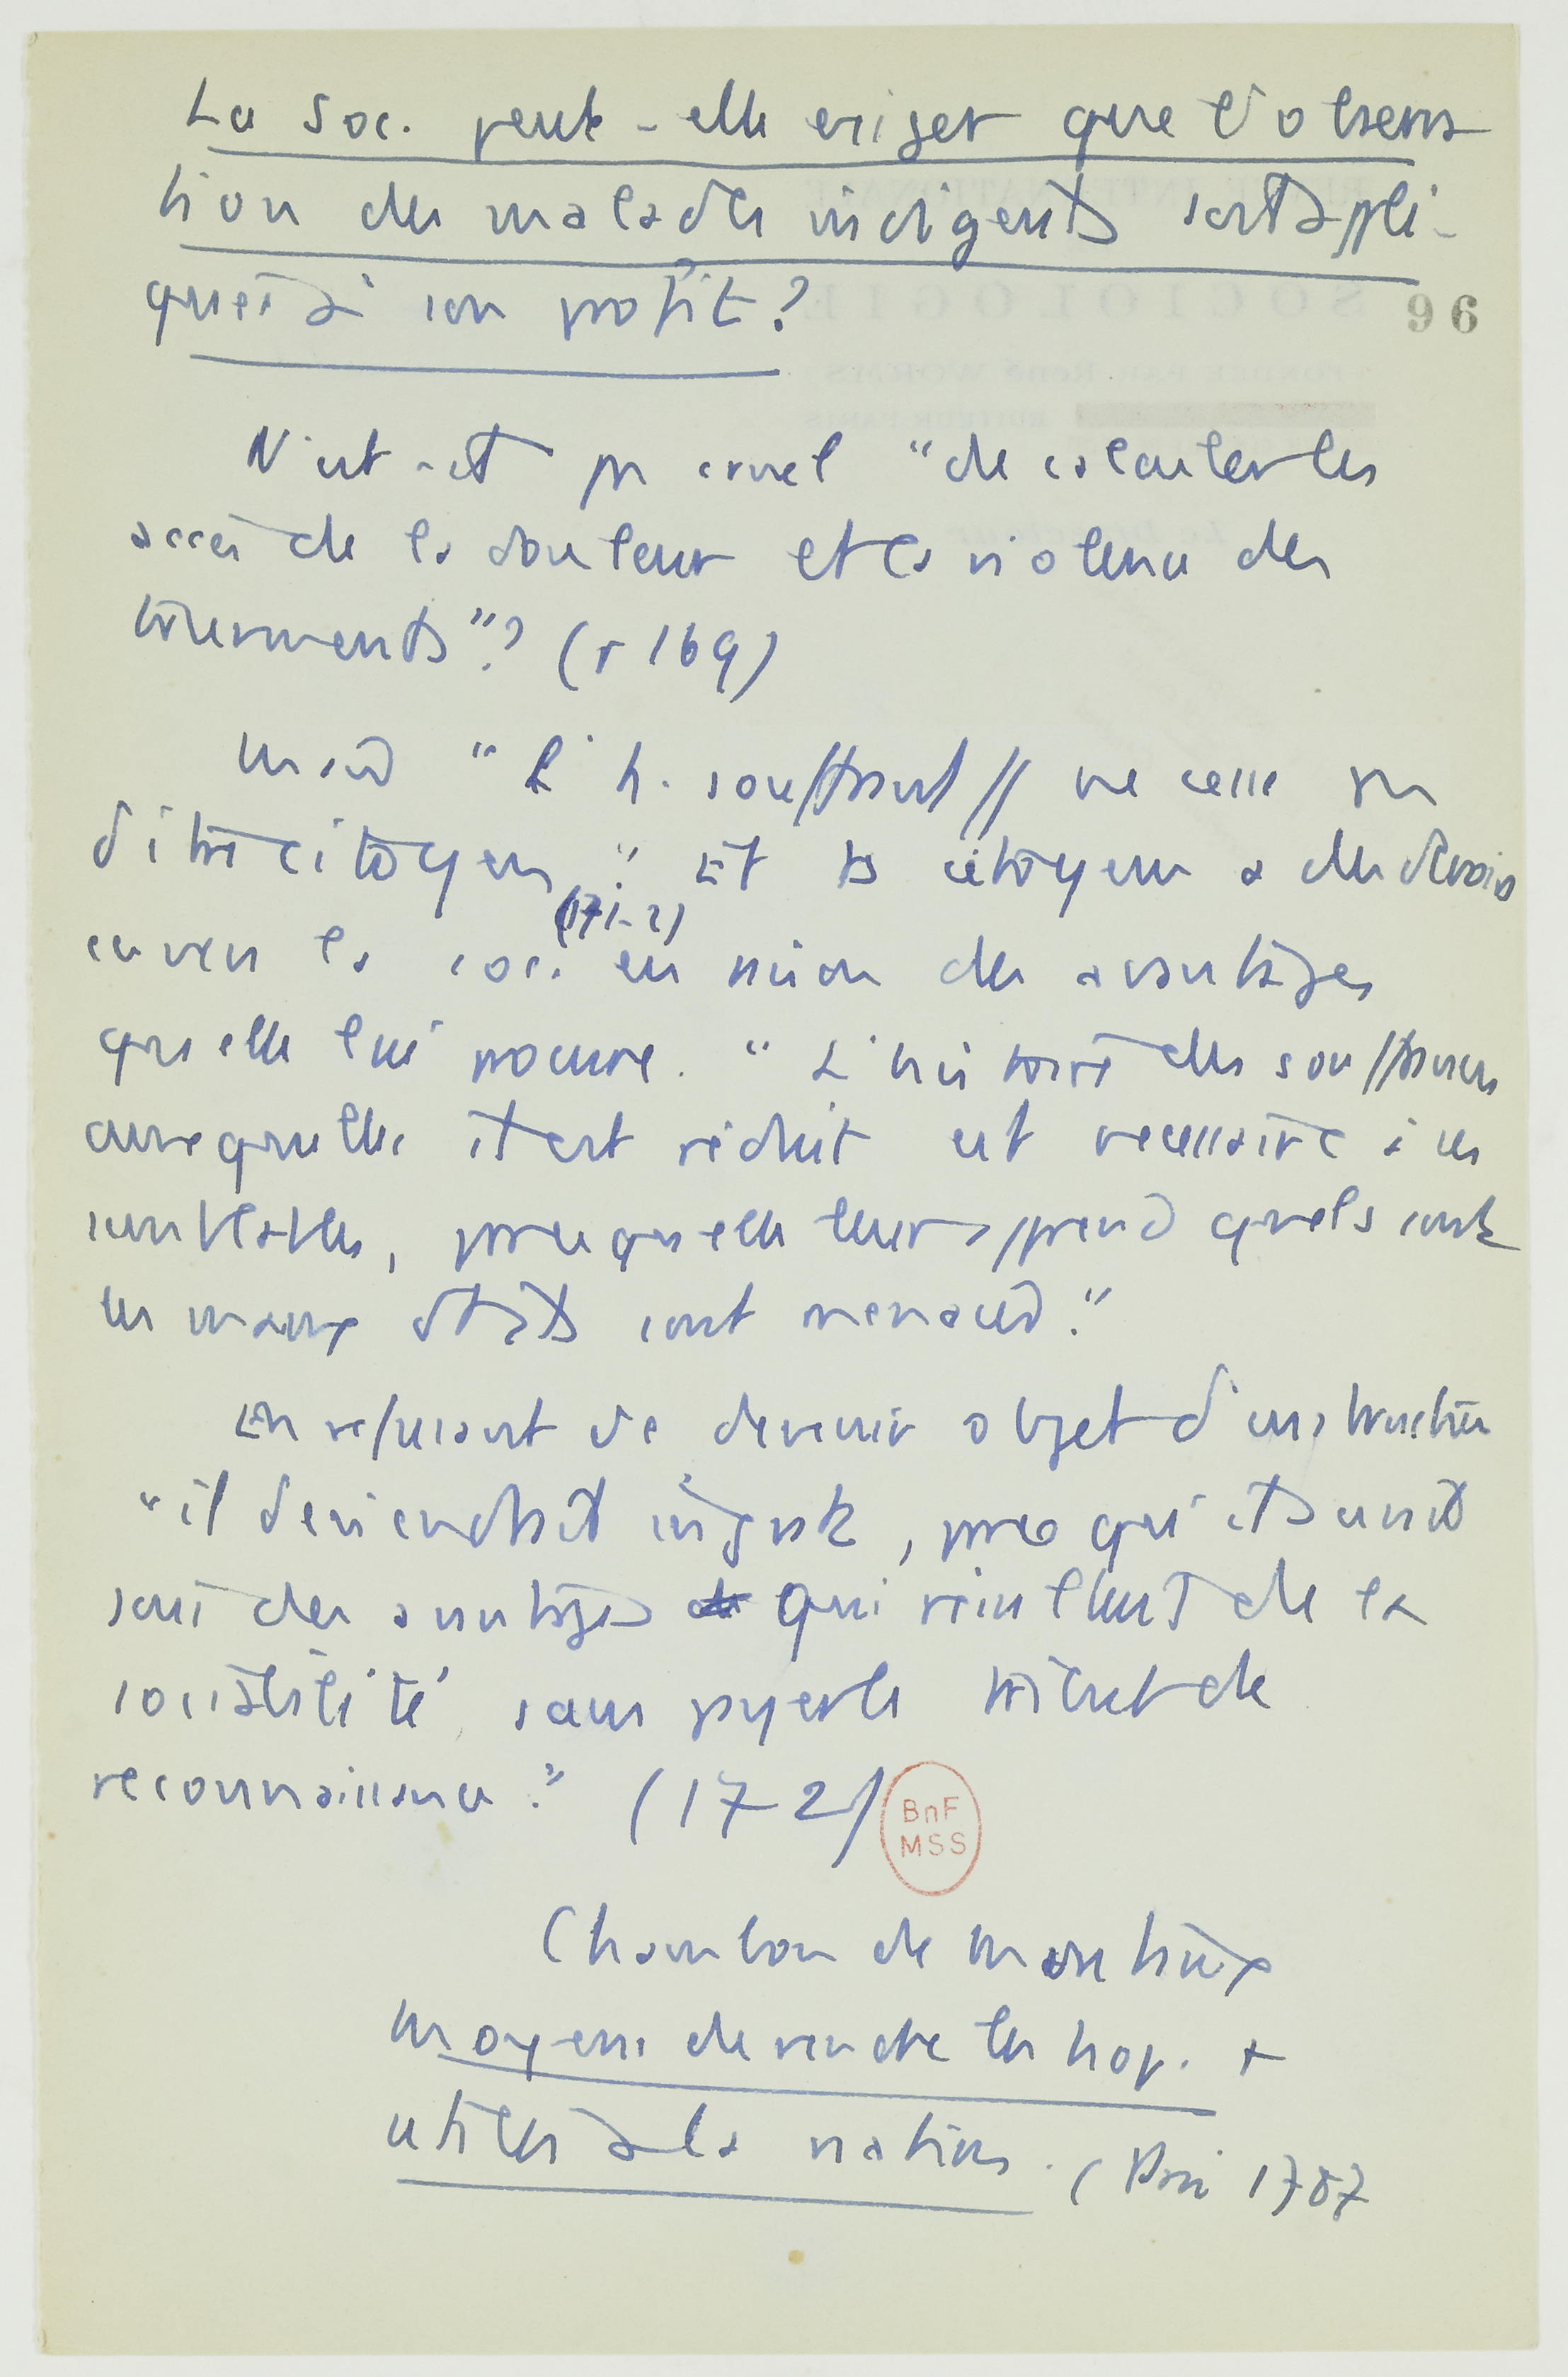 La soc. peut-elle exiger que l'observa
tion des malades indigents soit appli-
quée à son profit ?
96
N'est-il pas cruel "de calculer les
accès de la douleur et la violence des
tourments" ? (p 169)
Mais "L'h. souffrant ne cesse pas
d'être citoyen". Et le citoyen a des devoirs
(171-2)
envers la soc. en raison des avantages
qu'elle lui procure. "L'histoire des souffrances
auxquelles il est réduit est nécessaire à ses
semblables, parce qu'elle leur apprend quels sont
les maux dt ils sont menacés."
En refusant de devenir objet d'instruction
"il deviendrait ingrat, parce qu'il aurait
joui des avantages qui résultent de la
sociabilité sans payer le tribut de
reconnaissance." (172)
BnF
MSS
Chambon de Montaux
Moyens de rendre les hop. +
utiles à la nation. (Paris 1787